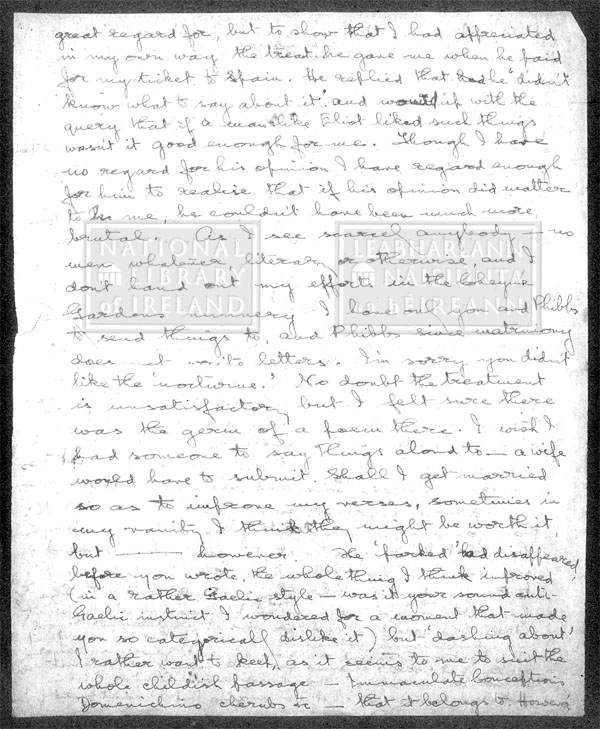 great regard for, but to show that I had appreciated
in my own way the treat he gave me when he paid
for my ticket to Spain. He replied that he 'didn't
know what to say about it' and with the
query that if a man like Eliot liked such things
wasn't it good enough for me. Though I have
no regard for his opinion I have regard enough
for him to realise that if his opinion did matter
to me, he couldn't have been much more
brutal. As I see scarcely anybody – no
men whatever literary or otherwise, and I
don't hand out my efforts in the Colleyne
Gardens nunnery I have only you and Phibbs
to send things to, and Phibbs since matrimony
does letters. I'm sorry you didn't
like the 'nocturne.' No doubt the treatment
is unsatisfactory but I felt sure there
was the germ of a poem there. I wish I
had someone to say things aloud to – a wife
would have to submit. Shall I get married
so as to improve my verses, sometimes in
my vanity I think they might be worth it,
but —— however. The 'parked' had disappeared
before you wrote, the whole thing I think improved
(in a rather Gaelic style – was it your sound anti-
Gaelic instinct I wondered for a moment that made
you so categorically dislike it) but 'dashing about'
I rather want to keep, as it seems to me to suit the
whole childish passage – Immaculate Conceptions
Domenichino cherubs &c – that it belongs to.
NATIONAL LIBRARY of IRELAND
LEABHARLANN NÁISIÚNTA na hÉIREANN